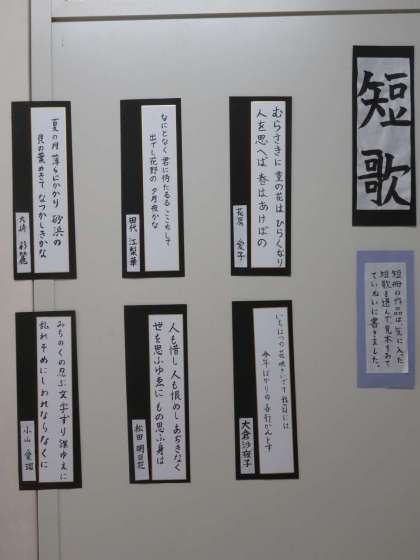 短歌
短冊の作品は、気に入った
短歌を選んで見本をみて
ていねいに書きました。
むらさきに 菫の花は ひらくなり
人を思へば 春はあけぼの
愛子
なにとなく 君に待たるる ここちして
出でし花野の 夕月夜かな
田代 江梨華
夏の月 薄らにかかり 砂浜の
貝の葉めきて なつかしきかな
大崎
いちはつの 花咲きいでて 我目には
今年ばかりの 春行かんとす
大倉沙夜子
人も惜し 人も恨めし あぢきなく
世を思ふゆゑに もの思ふ身は
松田 明日花
みちのくの 忍ぶ文字ずり 誰ゆえに
乱れそめにし われならなくに
小山